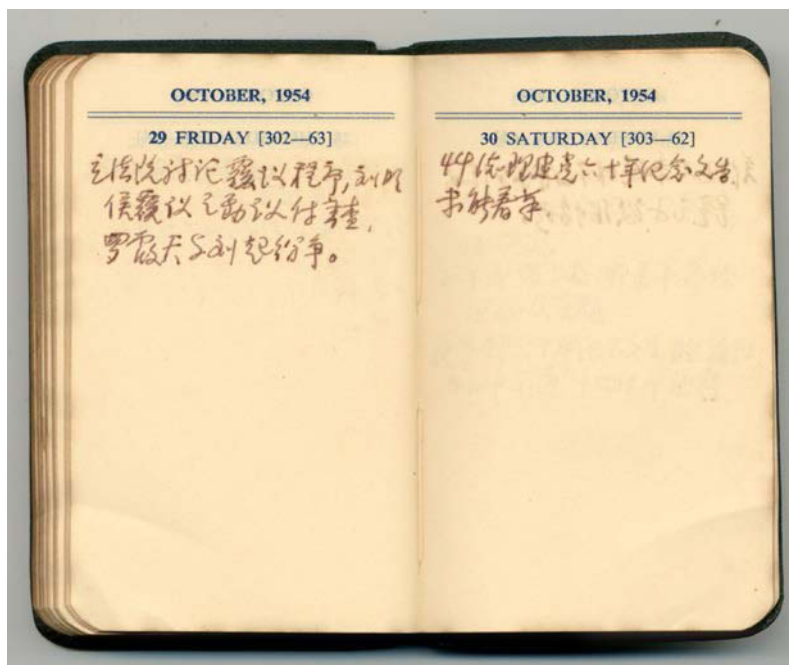 OCTOBER, 1954
29 FRIDAY [302—63]
立法院讨论覆议程序,刘明
侯覆议之動议付審查,
罗霞天与刘起纷争。
OCTOBER, 1954
30 SATURDAY [303—62]
总理建党六十年纪念文告